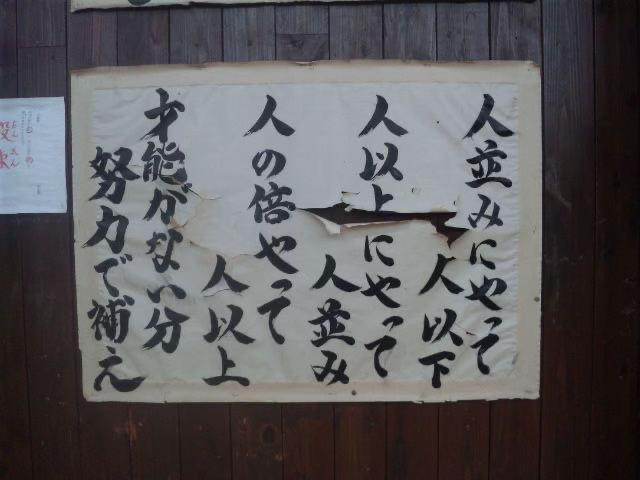 人並みにやって
人以下
人以上にやって
人並み
人の倍やって
人以上
才能がない分
努力で補え